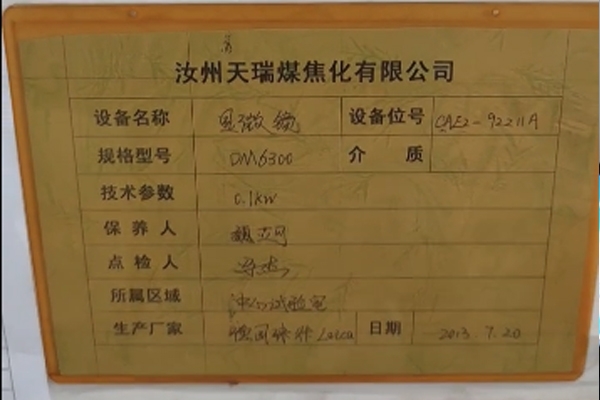 汝州天瑞煤焦化有限公司
设备名称 显微镜 设备位号 CAE2-92211A
规格型号 DM6300 介 质
技术参数 0.1kw
保养人
点检人
所属区域 试验室
生产厂家 德国 Leica 日期 2013.7.20